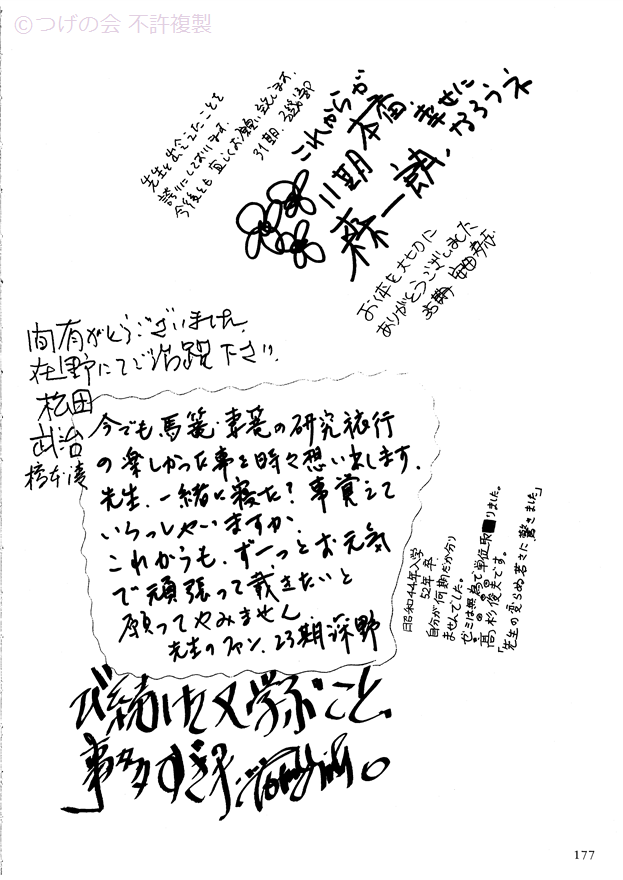 ©つげの会 不許複製
先生と出会えたことを
誇りにしております。
今後とも宜しくお願い致します。
31期
これからが
本番、幸せに
なろうネ
11期
森一朗
お体を大切に
ありがとうございました
安田
間有がとうございました。
在野にてご活躍下さい。
松田
武治
橋本凌
今でも馬篭・妻篭の研究旅行
の楽しかった事を時々想い出します。
先生、一緒に寝た?事覚えて
いらっしゃいますか。
これからも、ずーっとお元気
で頑張って戴きたいと
願ってやみません。
先生のファン、23期深野
昭和44年入学
52年卒
自分が何期だか分り
ませんでした。
ゼミは無で単位取りました。
高杉俊夫です。
「先生の変らぬ若さに驚きました」
び続けた又学ぶこと、
事多すぎ
177